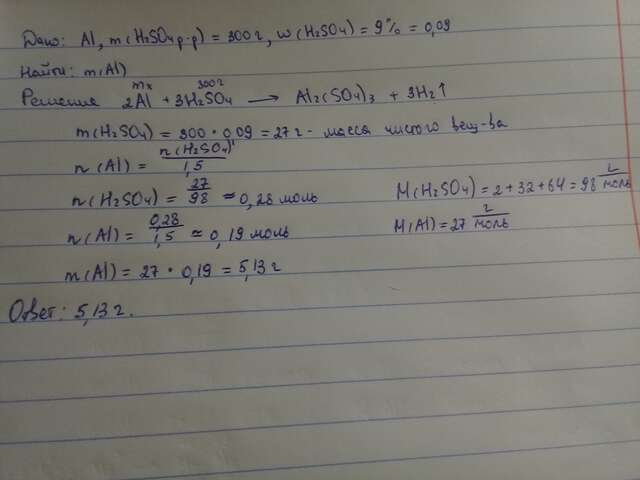 Дано: Al, m(H2SO4 р-р) = 300 г, w(H2SO4) = 9% = 0,09
Найти: m(Al)
mx 300 г
Решение 2Al + 3H2SO4 → Al2(SO4)3 + 3H2↑
m(H2SO4) = 300 • 0,09 = 27 г - масса чистого вещ-ва
n(Al) = n(H2SO4)/1,5
n(H2SO4) = 27/98 ≈ 0,28 моль M(H2SO4) = 2 + 32 + 64 = 98 г/моль
n(Al) = 0,28/1,5 ≈ 0,19 моль M(Al) = 27 г/моль
m(Al) = 27 • 0,19 = 5,13 г
Ответ: 5,13 г.